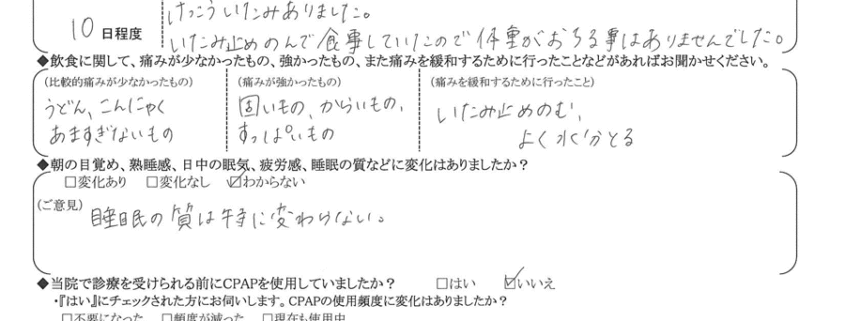 けっこういたみありました。
10日程度
いたみ止めのんで食事していたので体重がおちる事はありませんでした。
◆飲食に関して、痛みが少なかったもの、強かったもの、また痛みを緩和するために行ったことなどがあればお聞かせください。
(比較的痛みが少なかったもの) (痛みが強かったもの) (痛みを緩和するために行ったこと)
うどん、こんにゃく 固いもの、からいもの、 いたみ止めのむ、
あますぎないもの すっぱいもの よく水分とる
◆朝の目覚め、熟睡感、日中の眠気、疲労感、睡眠の質などに変化はありましたか?
□変化あり □変化なし ☑わからない
(ご意見)
睡眠の質は特に変わらない。
◆当院で診療を受けられる前にCPAPを使用していましたか? □はい ☑いいえ
・『はい』にチェックされた方にお伺いします。CPAPの使用頻度に変化はありましたか?
□不要になった □頻度が減った □現在も使用中